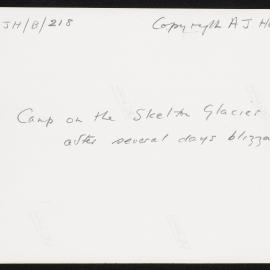 JH/B/218 Copyright A J H
Camp on the Skelton Glacier
after several days blizza